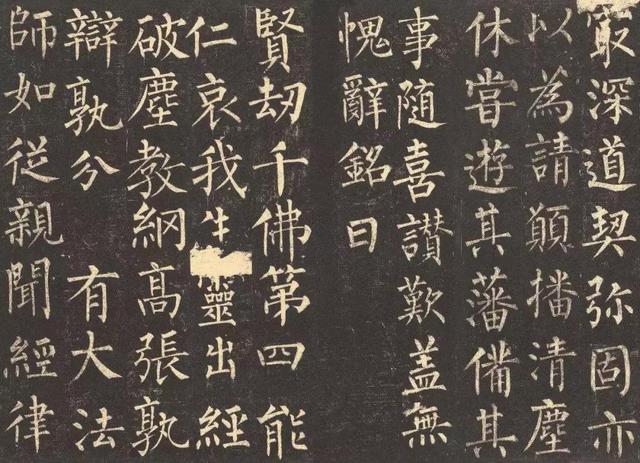 㝡深道契弥固亦
以為請願播清塵
休甞遊其藩備其
事随喜讃歎盖無
愧辭銘曰
賢劫千佛第四能
仁哀我生靈出經
破塵教綱高張孰
辯孰分 有大法
師如從親聞經律